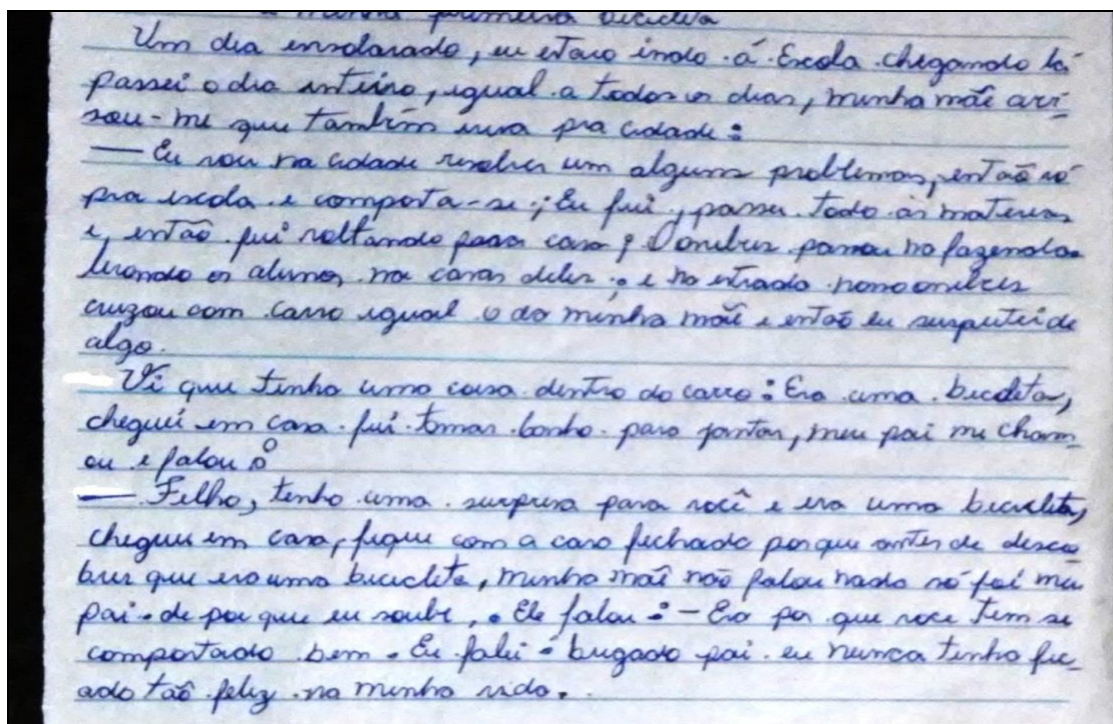 a minha primeira bicicleta
Um dia ensolarado, eu estava indo á Escola chegando lá
passei o dia inteiro, igual a todos os dias, minha mãe avi-
sou-me que também iria pra cidade:
— Eu vou na cidade resolver um alguns problemas, então vá
pra escola e comporta-se; Eu fui, passei todo as materias
e, então fui voltando para casa; O onibus passou na fazendas
levando os alunos na casas deles; e na estrada nosso onibus
cruzou com carro igual o da minha mãe e então eu suspeitei de
algo.
— Vi que tinha uma coisa dentro do carro: Era uma bicicleta,
cheguei em casa fui tomar banho para jantar, meu pai me cham-
ou e falou:
— Filho, tenho uma surpresa para você e era uma bicicleta,
cheguei em casa, fique com a cara fechada porque antes de desco
brir que era uma bicicleta, minha mãe não falou nada só foi meu
pai. de por que eu soube,. Ele falou: - Era por que voce tem se
comportado bem. Eu falei: brigado pai eu nunca tenho fic-
ado taõ feliz na minha vida.